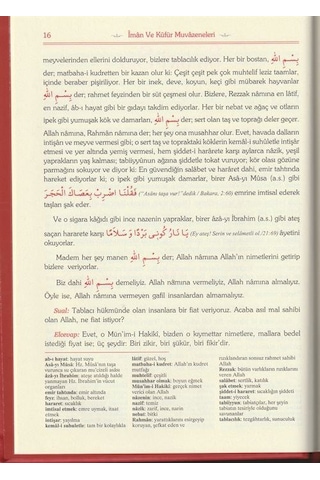 16
İman Ve Küfür Muvazemeleri
meyvelerinden ellerini dolduruyor, bizlere tablacılık ediyor. Her bir bostan, بِسْمِ اللهِ
der; matbaha-i kudretten bir kazan olur ki: Çeşit çeşit pek çok muhtelif leziz taamlar,
içinde beraber pişiriliyor. Her bir inek, deve, koyun, keçi gibi mübarek hayvanlar
بِسْمِ اللهِ der; rahmet feyzinden bir süt çeşmesi olur. Bizlere, Rezzak nâmına en lâtif,
en nazif, âb-ı hayat gibi bir gıdayı takdim ediyorlar. Her bir nebat ve ağaç ve otların
ipek gibi yumuşak kök ve damarları, بِسْمِ اللهِ der; sert olan taş ve toprağı deler geçer.
Allah nâmına, Rahmân nâmına der; her şey ona musahhar olur. Evet, havada dalların
intişarı ve meyve vermesi gibi, o sert taş ve topraktaki köklerin kemâl-i suhûletle intişar
etmesi ve yer altında yemiş vermesi, hem şiddet-i hararete karşı aylarca nâzik, yeşil
yaprakların yaş kalması; tabiiyyûnun ağzına şiddetle tokat vuruyor; kör olası gözüne
parmağını sokuyor ve diyor ki: En güvendiğin salâbet ve harâret dahi, emir tahtında
hareket ediyorlar ki; o ipek gibi yumuşak damarlar, birer Asâ-yı Mûsa (a.s.) gibi
فَقُلْنَا اضْرِبْ بِعَصَاكَ الْحَجَرَ ("Asânı taşa vur!" dedik / Bakara, 2:60) emrine imtisal ederek
taşları şak eder.
Ve o sigara kâğıdı gibi ince nazenin yapraklar, birer âzâ-yı İbrahim (a.s.) gibi ateş
saçan hararete karşı يَا نَارُ كُونِى بَرْدًا وَ سَلَامًا (Ey ateş! Serin ve selâmetli ol./21:69) âyetini
okuyorlar.
Madem her şey manen بِسْمِ اللهِ der; Allah nâmına Allah'ın nimetlerini getirip
bizlere veriyorlar.
Biz dahi بِسْمِ اللهِ demeliyiz. Allah nâmına vermeliyiz. Allah nâmına almalıyız.
Öyle ise, Allah nâmına vermeyen gafil insanlardan almamalıyız.
Sual: Tablacı hükmünde olan insanlara bir fiat veriyoruz. Acaba asıl mal sahibi
olan Allah, ne fiat istiyor?
Elcevap: Evet, o Mün'im-i Hakikî, bizden o kıymettar nimetlere, mallara bedel
istediği fiyat ise; üç şeydir: Biri zikir, biri şükür, biri fikir'dir.
âb-ı hayat: hayat suyu
Asâ-yı Mûsâ: Hz. Mûsâ'nın taşa
vurunca su çıkaran mu'cizeli asâsı
âzâ-yı İbrahim: ateşe atıldığı halde
yanmayan Hz. İbrahim'in vücut
organları
emir tahtında: emir altında
feyz: ihsan, bolluk, bereket
hararet: sıcaklık
imtisal etmek: emre uymak, itaat
etmek
intişar: yayılma
kemâl-i suhuletle: tam bir kolaylıkla
lâtif: güzel, hoş
matbaha-i kudret: Allah'ın kudret
mutfağı
muhtelif: çeşitli
musahhar olmak: boyun eğmek
Mün'im-i Hakikî: gerçek nimet
verici olan Allah
nâzenin: ince, nazik
nazif: temiz
nâzik: zarif, ince, narin
nebat: bitki
Rahman: yarattıklarını esirgeyip
koruyan, şefkat eden ve
rızıklandıran sonsuz rahmet sahibi
Allah
Rezzak: bütün varlıkların rızıklarını
veren Allah
salâbet: sertlik, katılık
şak etmek: yarmak
şiddet-i hararet: sıcaklığın şiddeti
taam: yiyecek
tabiiyyun: tabiatçılar, her şeyin
tabiatın tesiriyle olduğunu
savunanlar
tablacılık: tezgâhtarlık, sunuculuk